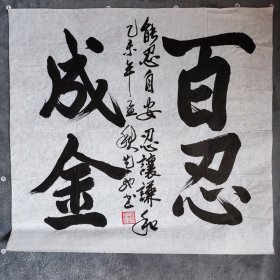 百忍
成金
能忍自安 忍讓謙和
乙未年
書